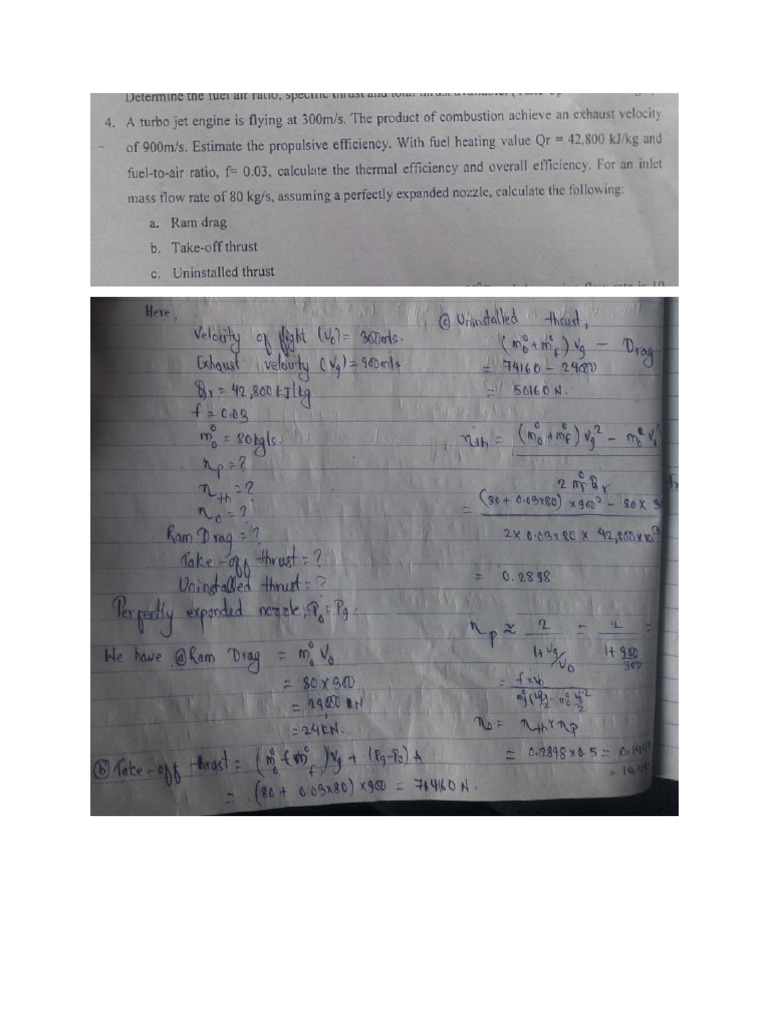 Determine the fuel air ratio, specific thrust and total thrust available.
4. A turbo jet engine is flying at 300m/s. The product of combustion achieve an exhaust velocity
of 900m/s. Estimate the propulsive efficiency. With fuel heating value Qr = 42,800 kJ/kg and
fuel-to-air ratio, f= 0.03, calculate the thermal efficiency and overall efficiency. For an inlet
mass flow rate of 80 kg/s, assuming a perfectly expanded nozzle, calculate the following:
a. Ram drag
b. Take-off thrust
c. Uninstalled thrust
Here,
Velocity of flight (V₀) = 300m/s.
Exhaust velocity (V₉) = 900m/s
Qr = 42,800 kJ/kg
f = 0.03
ṁ₀ = 80kg/s.
ηp = ?
ηth = ?
η₀ = ?
Ram Drag = ?
Take-off thrust = ?
Uninstalled thrust = ?
Perfectly expanded nozzle, P₀ = P₉.
We have ⓐ Ram Drag = ṁ₀ V₀
= 80 × 300
= 24000
= 24 kN.
ⓑ Take-off thrust = (ṁ₀ + ṁf) V₉ + (P₉-P₀) A
= (80 + 0.03×80) × 900 = 74160 N.
ⓒ Uninstalled thrust,
(ṁ₀ + ṁf) V₉ - Drag
= 74160 - 24000
= 50160 N.
ηth = (ṁ₀ + ṁf) V₉² - ṁ₀ V₀
2 ṁf Qr
= (80 + 0.03×80) × 900² - 80 × 3
2 × 0.03 × 80 × 42,800 × 10³
= 0.2898
ηp ≈ 2 / (1 + V₉/V₀) = 2 / (1 + 900/300) =
η₀ = ηth × ηp
= 0.2898 × 0.5 =